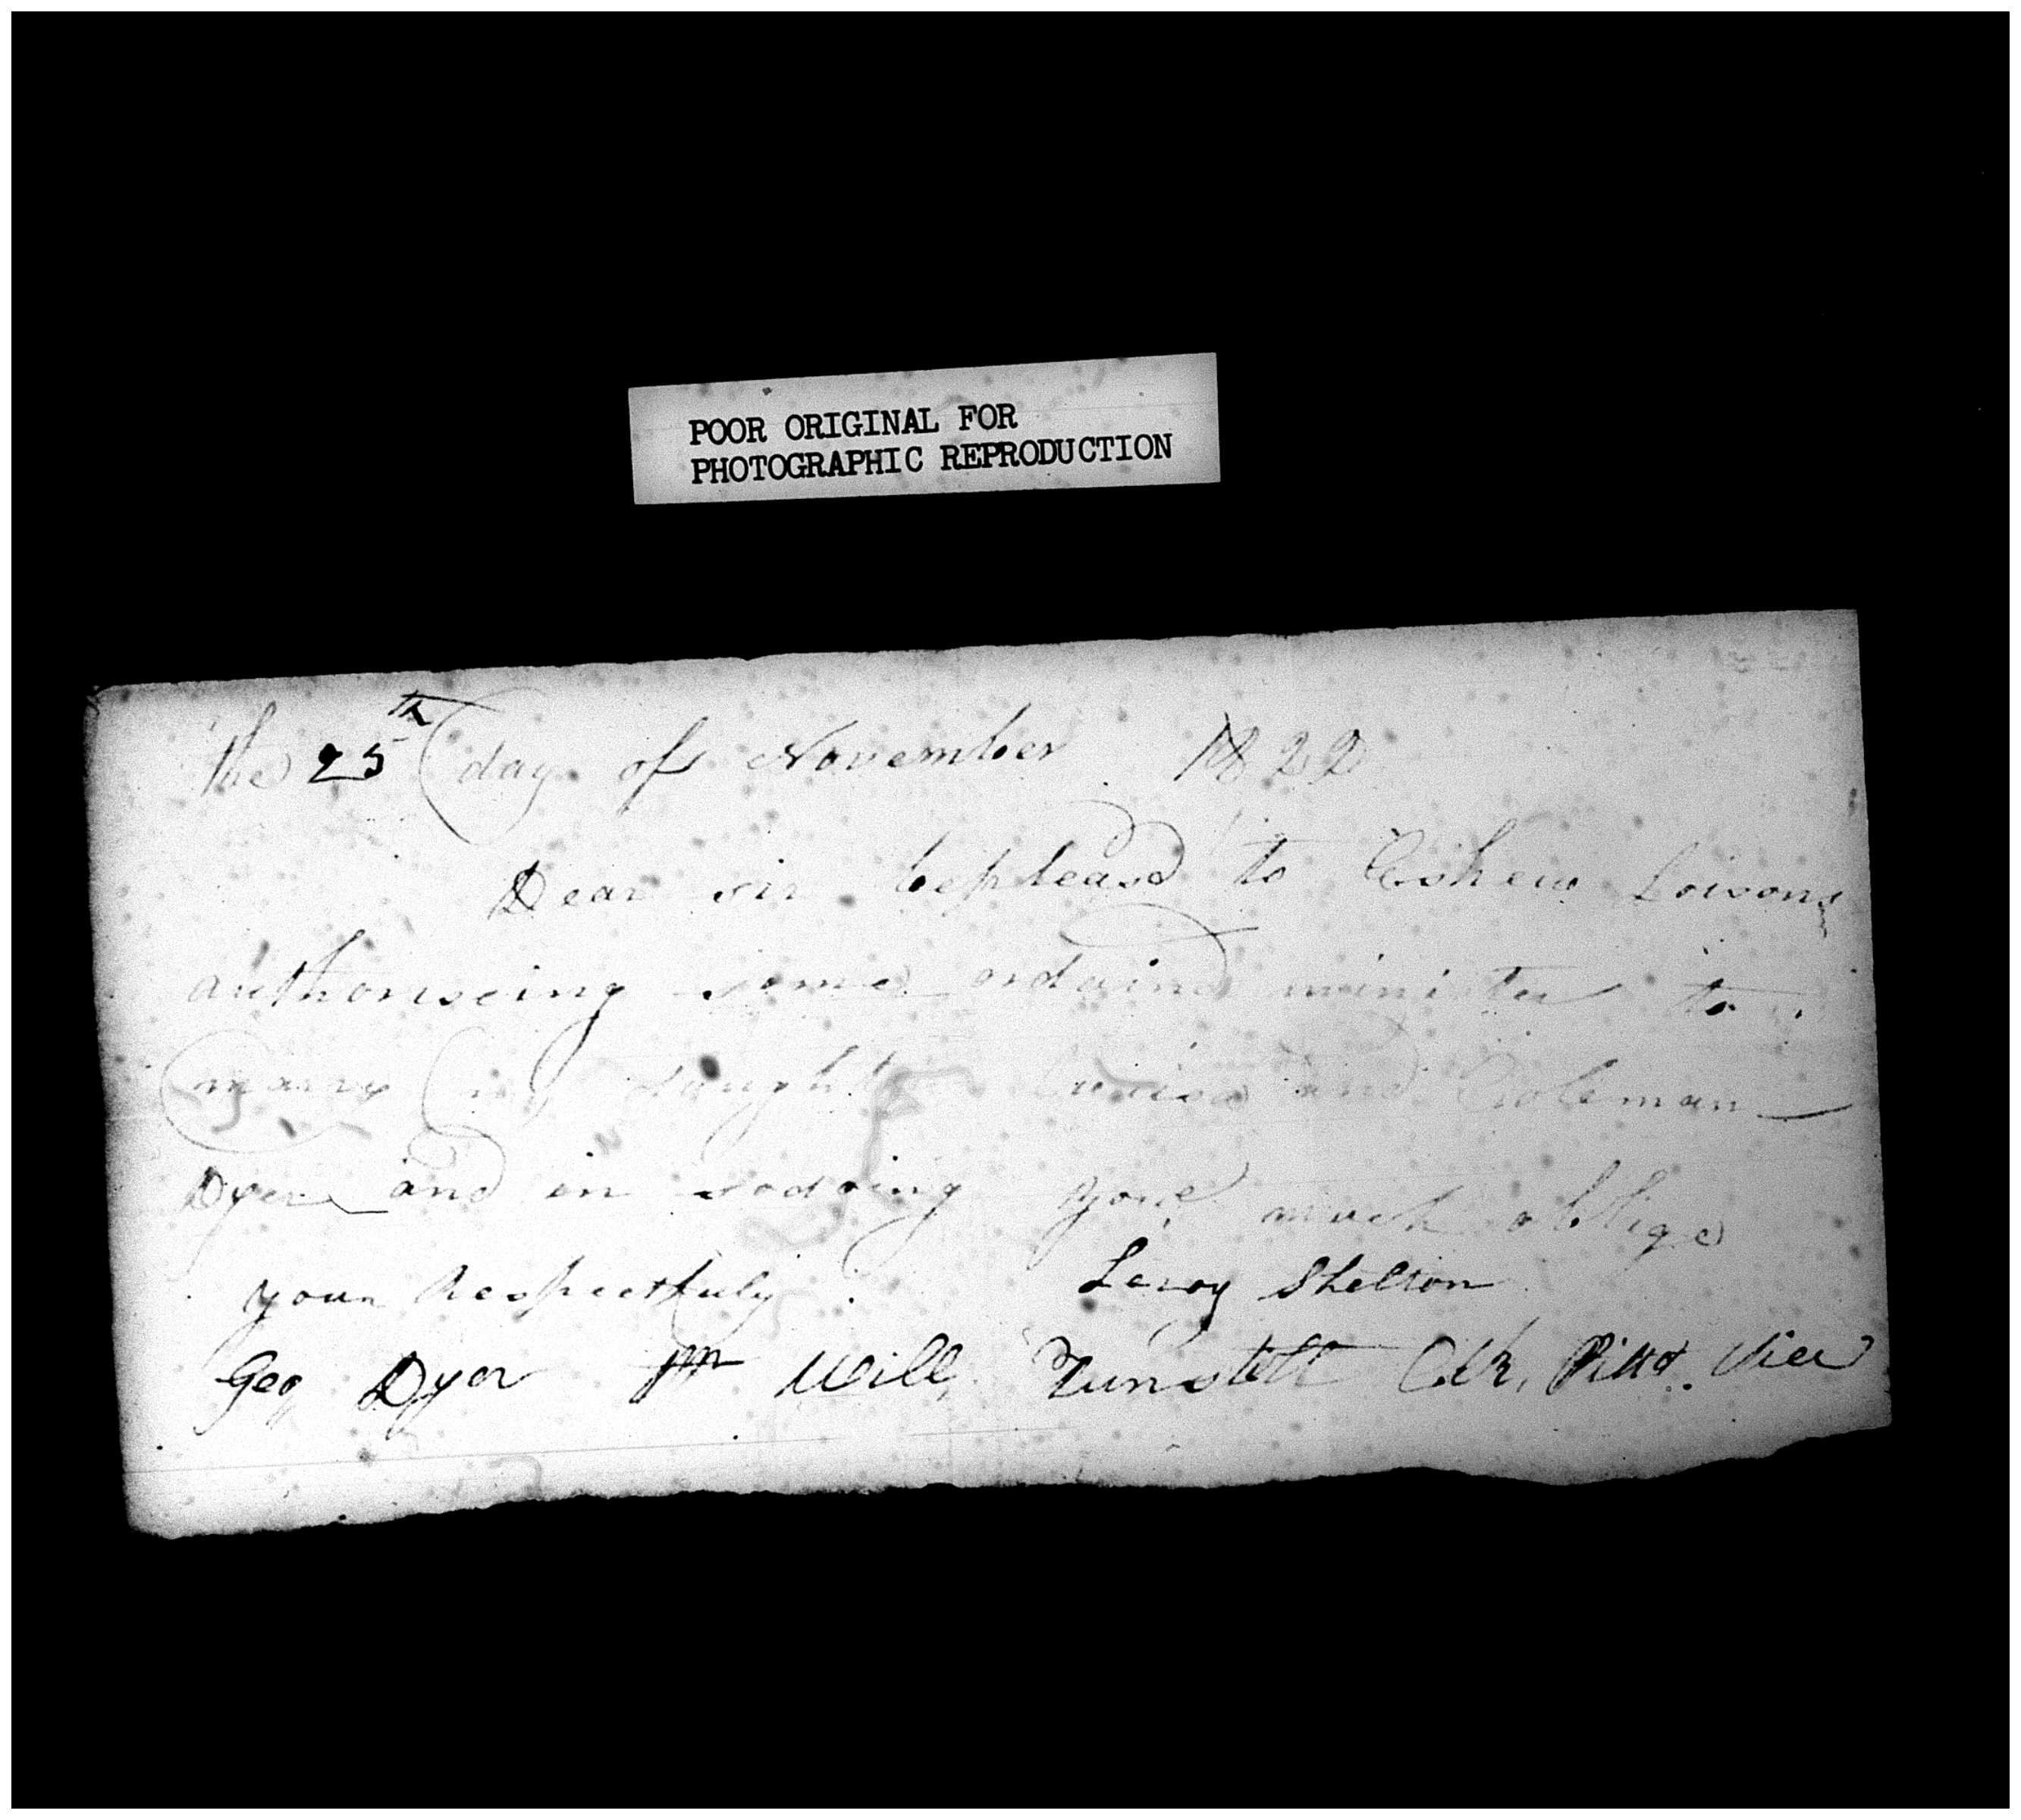 POOR ORIGINAL FOR
PHOTOGRAPHIC REPRODUCTION
the 25th day of November 1822
Dear sir bepleasd to Eshew
authoriseing some ordaind minister to
marry my daughter and Coleman
Dyer and in sodoing youl much oblige
your Respectfuly Leroy Shelton
Geo, Dyer Will, Tunstall Clk, Pittd.